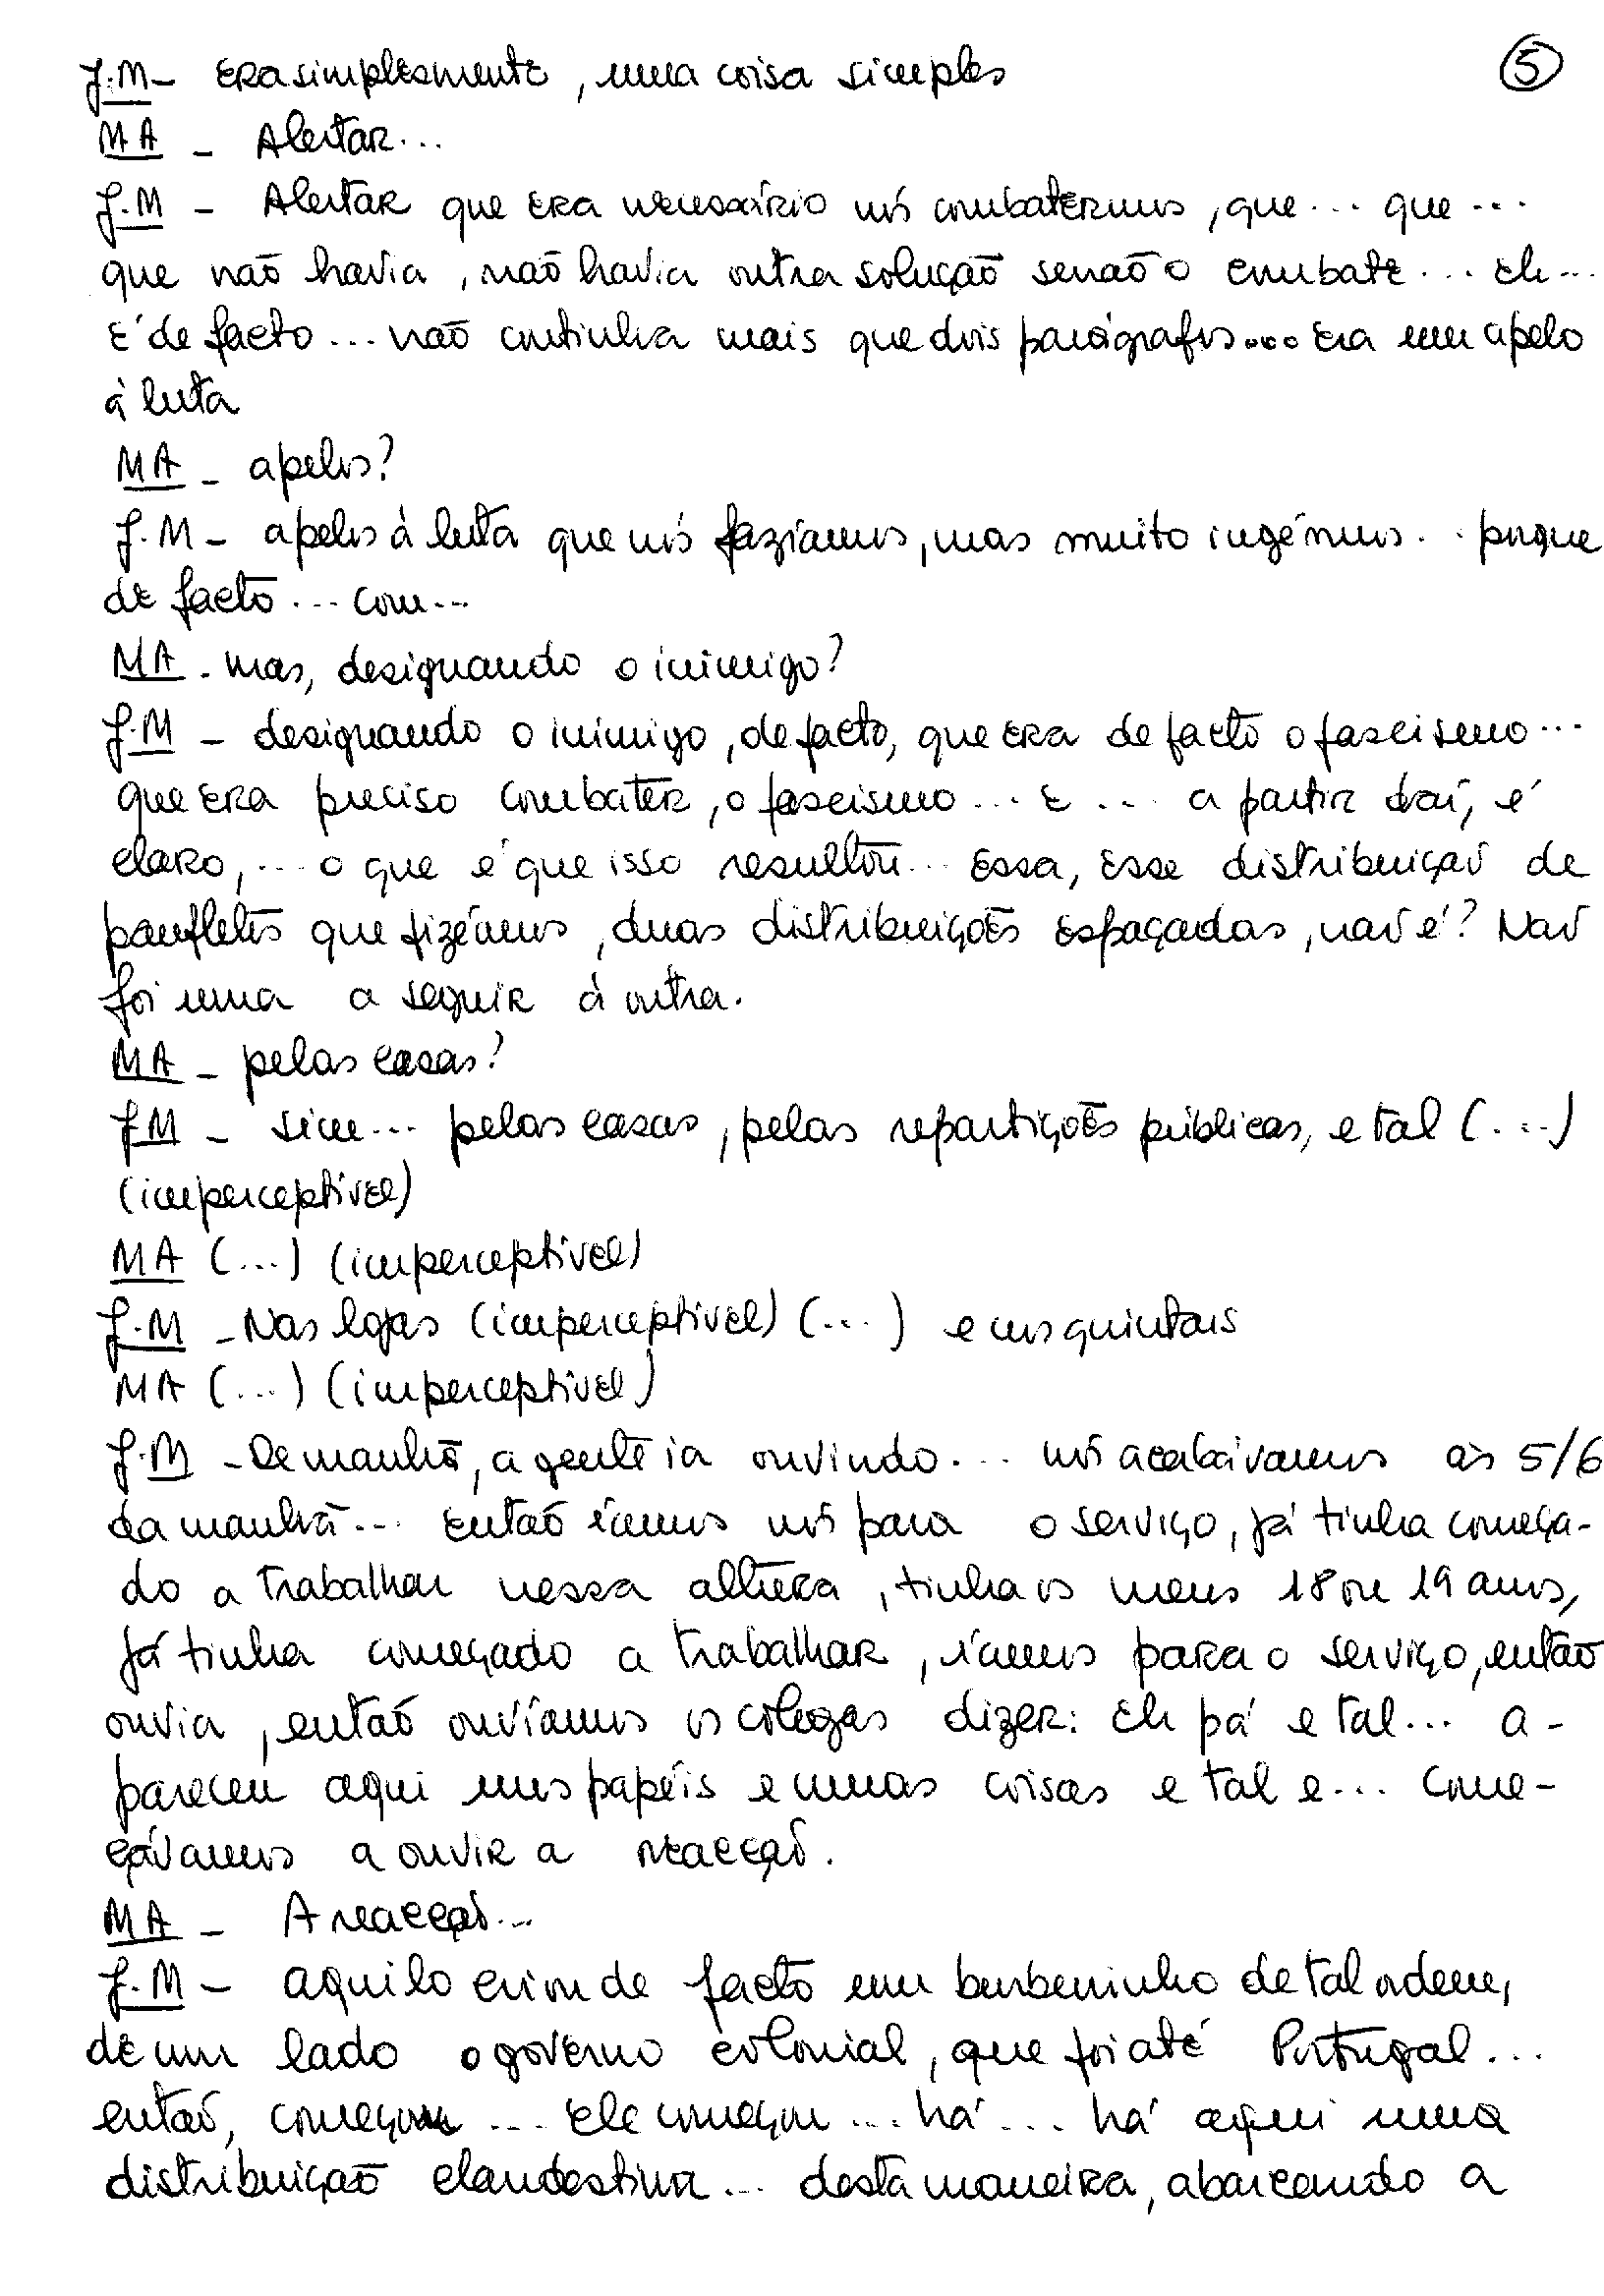 J.M - Era simplesmente, uma coisa simples ⑤
MA - Alertar...
J.M - Alertar que era necessário nós combatermos, que... que...
que não havia, não havia outra solução senão o combate... eh...
E de facto... não continha mais que dois parágrafos... era um apelo
à luta
MA - apelos?
J.M - apelos à luta que nós fazíamos, mas muito ingénuos.. porque
de facto... com...
MA - mas, designando o inimigo?
J.M - designando o inimigo, de facto, que era de facto o fascismo...
que era preciso combater, o fascismo... e... a partir daí, é
claro,... o que é que isso resultou... Essa, esse distribuição de
panfletos que fizémos, duas distribuições espaçadas, não é? Não
foi uma a seguir à outra.
MA - pelas casas?
JM - sim... pelas casas, pelas repartições públicas, e tal (...)
(imperceptível)
MA (...) (imperceptível)
J.M - Nas lojas (imperceptível) (...) e nos quintais
MA (...) (imperceptível)
J.M - De manhã, a gente ia ouvindo... nós acabávamos às 5/6
da manhã... então íamos nós para o serviço, já tinha começa-
do a trabalhar nessa altura, tinha os meus 18 ou 19 anos,
já tinha começado a trabalhar, íamos para o serviço, então
ouvia, então ouvíamos os colegas dizer: Eh pá e tal... a-
pareceu aqui uns papéis e umas coisas e tal e... come-
çávamos a ouvir a reacção.
MA - A reacção...
J.M - aquilo criou de facto um burburinho de tal ordem,
de um lado o governo colonial, que foi até Portugal...
então, começou... Ele começou... há... há aqui uma
distribuição clandestina... desta maneira, abarcando a